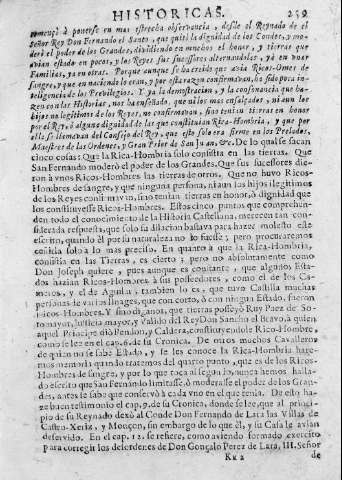 HISTORICAS. 259
començò à ponerse en mas estrecha observancia, desde el Reynado de el
Señor Rey Don Fernando el Santo, que quitò la dignidad de los Condes, y mo-
derò el poder de los Grandes, dividiendo en muchos el honor, y tierras que
avian estado en pocos, y los Reyes sus sucessores alternandolas, yà en unas
Familias, ya en otras. Porque aunque se ha creido que avia Ricos-Omes de
sangre, y que en naciendo lo eran, y por esta razon confirmavan, ha sido poca in-
teligencia de los Previlegios. Y la demostracion, y la consonancia que ha-
zen con las Historias, nos ha enseñado, que ni los mas ensalçados, ni aun los
hijos no legitimos de los Reyes, no confirmavan, sino tenian tierras en honor
por el Rey, ò alguna dignidad de las que constituìan Rica-Hombria, y que por
ella se llamavan del Consejo del Rey, que esto solo era firme en los Prelados,
Maestres de las Ordenes, y Gran Prior de San Juan, &c. De lo qual se sacan
cinco cosas: Que la Rica-Hombria solo consistia en las tierras. Que
San Fernando moderò el poder de los Grandes. Que sus sucessores die-
ron à vnos Ricos-Hombres las tierras de otros. Que no huvo Ricos-
Hombres de sangre, y que ninguna persona, ni aun los hijos ilegitimos
de los Reyes confirmavan, sino tenian tierras en honor, ò dignidad que
los constituyesse Ricos-Hombres. Estos cinco puntos que comprehen-
den todo el conocimiento de la Historia Castellana, merecen tan con-
siderada respuesta, que solo su dilacion bastava para hazer molesto este
escrito, quando èl por su naturaleza no lo fuesse; pero procuraremos
ceñirla solo à lo mas preciso. En quanto à que la Rica-Hombria,
consistia en las Tierras, es cierto; pero no absolutamente como
Don Joseph quiere, pues aunque es constante, que algunos Esta-
dos hazian Ricos-Hombres à sus possedores, como el de los Ca-
meros, y el de Aguilar; tambien lo es, que tuvo Castilla muchas
personas de varios linages, que con corto, ò con ningun Estado, fueron
Ricos-Hombres. Y sino diganos, que tierras posseyò Ruy Paez de So-
tomayor, Justicia mayor, y Valido del Rey Don Sancho el Bravo, à quien
aquel Principe diò Pendon, y Caldera, constituyendole Rico-Hombre,
como se lee en el cap. 6. de su Cronica. De otros muchos Cavalleros
de quien no se sabe Estado, y se les conoce la Rica-Hombria hare-
mos memoria quando tratemos del quarto punto, que es de los Ricos-
Hombres de sangre, y por lo que toca al segundo, nunca hemos halla-
do escrito que San Fernando limitasse, ò moderasse el poder de los Gran-
des, antes se sabe que conservò à cada vno en el que tenia. De esto ha-
ze buen testimonio el cap. 9. de su Cronica, donde se lee, que al princi-
pio de su Reynado dexò al Conde Don Fernando de Lara las Villas de
Castro-Xeriz, y Monçon, sin embargo de lo que èl, y su Casa le avian
deservido. En el cap. 12. se refiere, como aviendo formado exercito
para corregir los desordenes de Don Gonçalo Perez de Lara, III. Señor
Kk 2 de